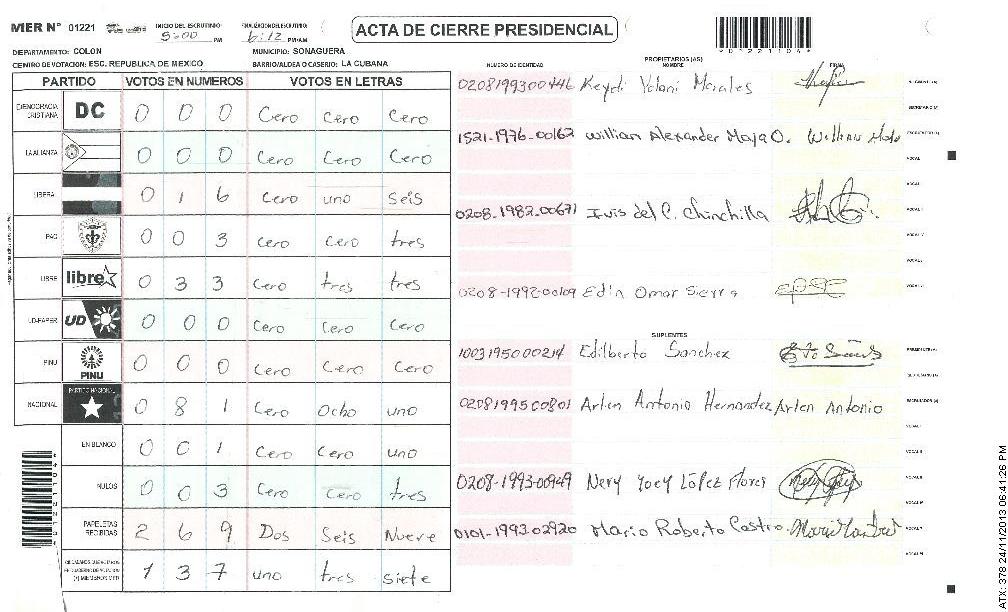 MER N° 01221 INICIO DEL ESCRUTINIO: 5:00 PM FINALIZACION ESCRUTINIO: 6:12 PM/AM ACTA DE CIERRE PRESIDENCIAL
DEPARTAMENTO: COLON MUNICIPIO: SONAGUERA
CENTRO DE VOTACION: ESC. REPUBLICA DE MEXICO BARRIO/ALDEA O CASERIO: LA CUBANA
PARTIDO VOTOS EN NUMEROS VOTOS EN LETRAS
DEMOCRACIA CRISTIANA DC 0 0 0 Cero Cero Cero
LA ALIANZA 0 0 0 Cero Cero Cero
LIBERAL 0 1 6 Cero uno seis
PAC 0 0 3 Cero Cero tres
LIBRE libre 0 3 3 Cero tres tres
UD-FAPER UD 0 0 0 Cero Cero Cero
PINU PINU 0 0 0 Cero Cero Cero
NACIONAL PARTIDO NACIONAL 0 8 1 Cero Ocho uno
EN BLANCO 0 0 1 Cero Cero uno
NULOS 0 0 3 Cero Cero tres
PAPELETAS RECIBIDAS 2 6 9 Dos Seis Nueve
(+) MIEMBROS MER 1 3 7 uno tres siete
PROPIETARIOS (AS)
NUMERO DE IDENTIDAD NOMBRE FIRMA
0208199300446 Keydi Yolani Morales
1521-1976-00162 Willian Alexander Maya O.
0208-1982-00671 Ivis del C. Chinchilla
0208-1992-00109 Edin Omar Sierra
SUPLENTES
1003195000214 Edilberto Sanchez
0208199500801 Arlen Antonio Hernandez Arlen Antonio
0208-1993-00949 Nery Yoey López Flores
0101-1993-02920 Mario Roberto Castro
ATX: 378 24/11/2013 06:41:26 PM